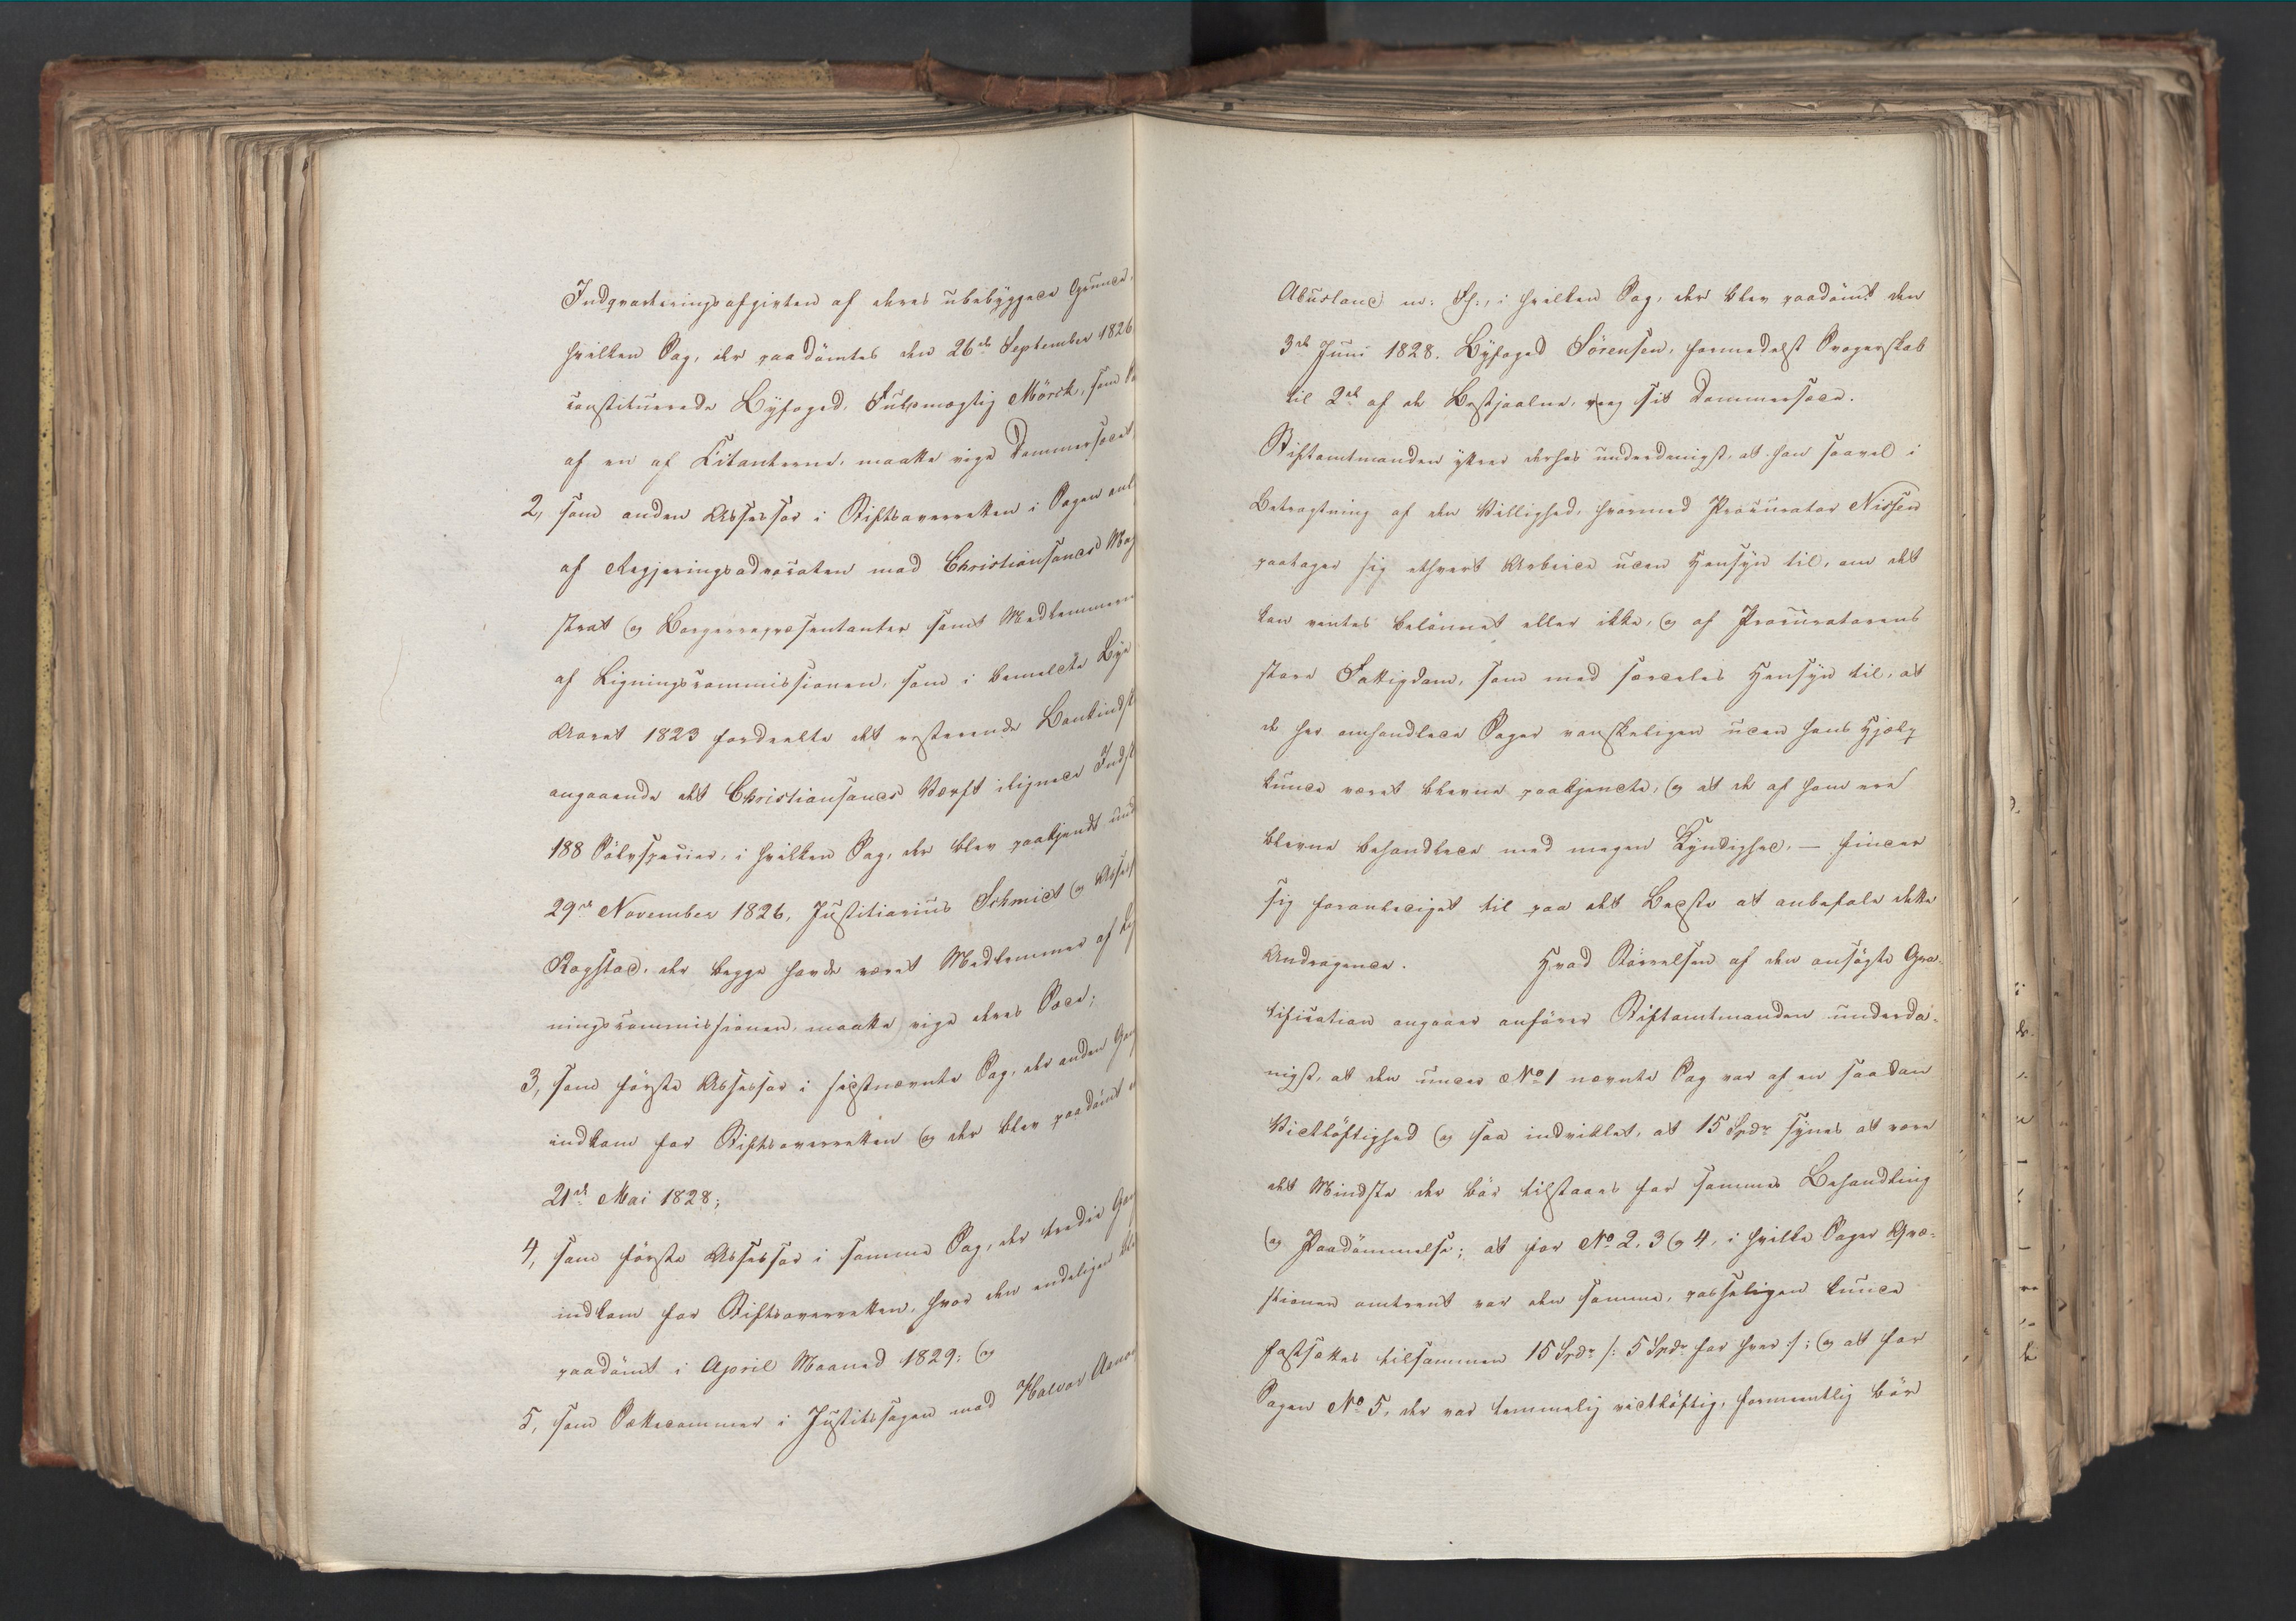 Indqvarteringsafgivten af deres ubebyggede Grunde,
hvilken Sag, der paadömtes den 26de September 1826
constituerede Byfoged, Fuldmægtig Mörch, som
af en af Citanterne, maatte vige Dommersædet,
2, som anden Assessor i Stiftsoverretten i Sagen anl
af Regjeringsadvocaten mod Christiansands Mag
strat og Borgerrepræsentanter samt Medlemmern
af Ligningscommissionen, som i bemeldte Bye
Aaret 1823 fordeelte det resterende Bankindsk
angaaende det Christiansands Værft ilignede Indsk
188 Sölvspecier, i hvilken Sag, der blev paakjendt und
29de November 1826, Justitiarius Schmidt og Assess
Rogstad, der begge havde været Medlemmer af Lig
ningscommissionen, maatte vige deres Sæde;
3, som förste Assessor i sidstnævnte Sag, der anden Gang
indkom for Stiftsoverretten og der blev paadömt
21de Mai 1828;
4, som förste Assessor i samme Sag, der tredie Gang
indkom for Stiftsoverretten, hvor den endeligen ble
paadömt i April Maaned 1829; og
5, som Sættedommer i Justitssagen mod Halvor
Abusland m: Fl:, i hvilken Sag, der blev paadömt den
3de Juni 1828. Byfoged Sörensen, formedelst Svogerskab
til 2de af de Bestjaalne, veg sit Dommersæde.
Stiftamtmanden yttrer derhos underdanigst, at han saavel i
Betragtning af den Villighed, hvormed Procurator Nissen
paatager sig ethvert Arbeide uden Hensyn til, om det
kan ventes belönnet eller ikke, og af Procuratorens
store Fattigdom, som med særdeles Hensyn til, at
de her omhandlede Sager vanskeligen uden hans Hjælp
kunde været blevne paakjendte, og at de af ham ere
blevne behandlede med megen Kyndighed, — finder
sig foranlediget til paa det Bedste at anbefale dette
Andragende. Hvad Störrelsen af den ansögte Gra-
tification angaaer anförer Stiftamtmanden underda-
nigst, at den under No 1 nævnte Sag var af en saadan
Vidtlöftighed og saa indviklet, at 15 Spdr synes at være
det Mindste der bör tilstaaes for sammes Behandling
og Paadömmelse; at for No 2, 3 og 4, i hvilke Sager Qvæ-
stionen omtrent var den samme, passeligen kunde
fastsættes tilsammen 15 Spdr /: 5 Spdr for hver :/; og at for
Sagen No 5, der var temmelig vidtlöftig, formeentlig bör